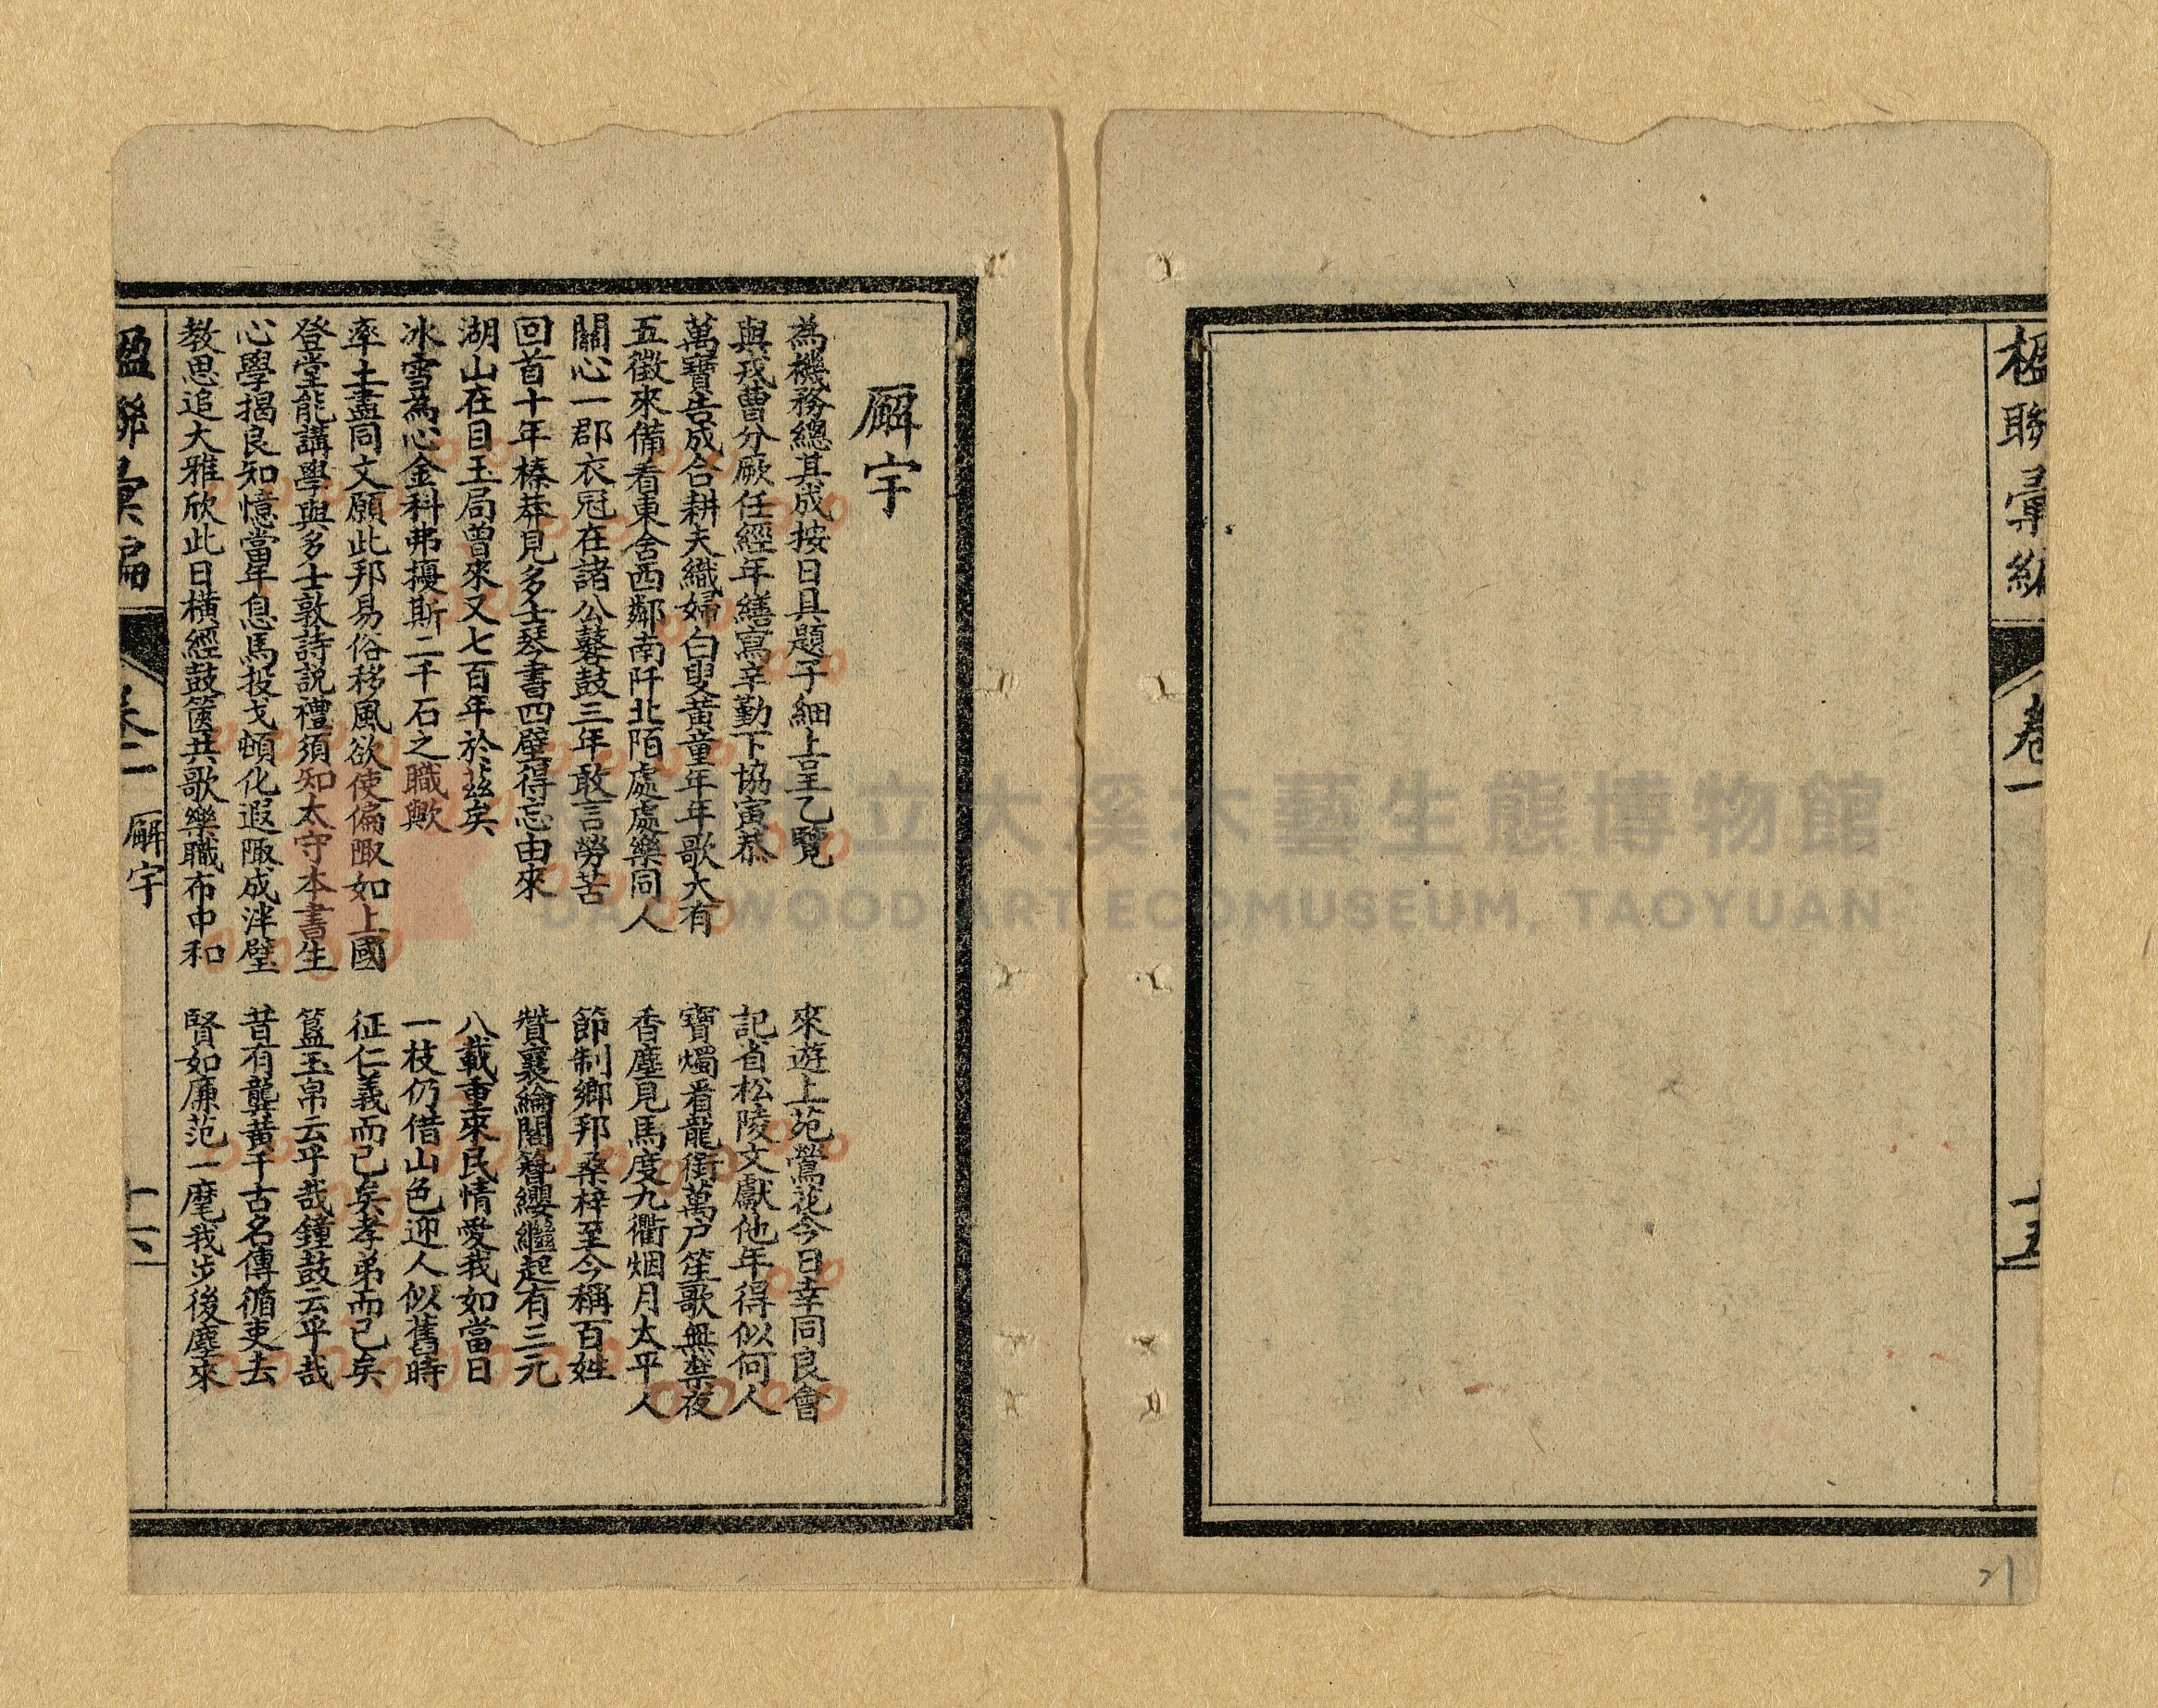 楹聯彙編
卷一
十五
廨宇
為機務總其成按日具題子細上呈乙覽
來遊上苑鶯花今日幸同良會
與戎曹分厥任經年繕寫辛勤下協寅恭
記省松陵文獻他年得似何人
萬寶告成合耕夫織婦白叟黃童年年歌大有
寶燭看龍銜萬户笙歌無禁夜
五徵來備看東舍西鄰南阡北陌處處樂同人
香塵見馬度九衢烟月太平人
關心一郡衣冠在諸公鼛鼓三年敢言勞苦
節制鄉邦桑梓至今稱百姓
回首十年榛莽見多士琴書四壁得忘由來
贊襄綸閣簪纓繼起有三元
湖山在目玉局曾來又七百年於茲矣
八載重來民情愛我如當日
冰雪為心金科弗擾斯二千石之職歟
一枝仍借山色迎人似舊時
率土盡同文願此邦易俗移風欲使偏陬如上國
征仁義而已矣孝弟而已矣
登堂能講學與多士敦詩説禮須知太守本書生
簋玉帛云乎哉鐘鼓云乎哉
心學揭良知憶當年息馬投戈頓化遐陬成泮璧
昔有龔黃千古名傳循吏去
教思追大雅欣此日橫經鼓篋共歌樂職布中和
賢如廉范一麾我步後塵來
楹聯彙編
卷二
廨宇
十六
21
立大溪木藝生態博物館
DAXI WOOD ART ECOMUSEUM, TAOYUAN